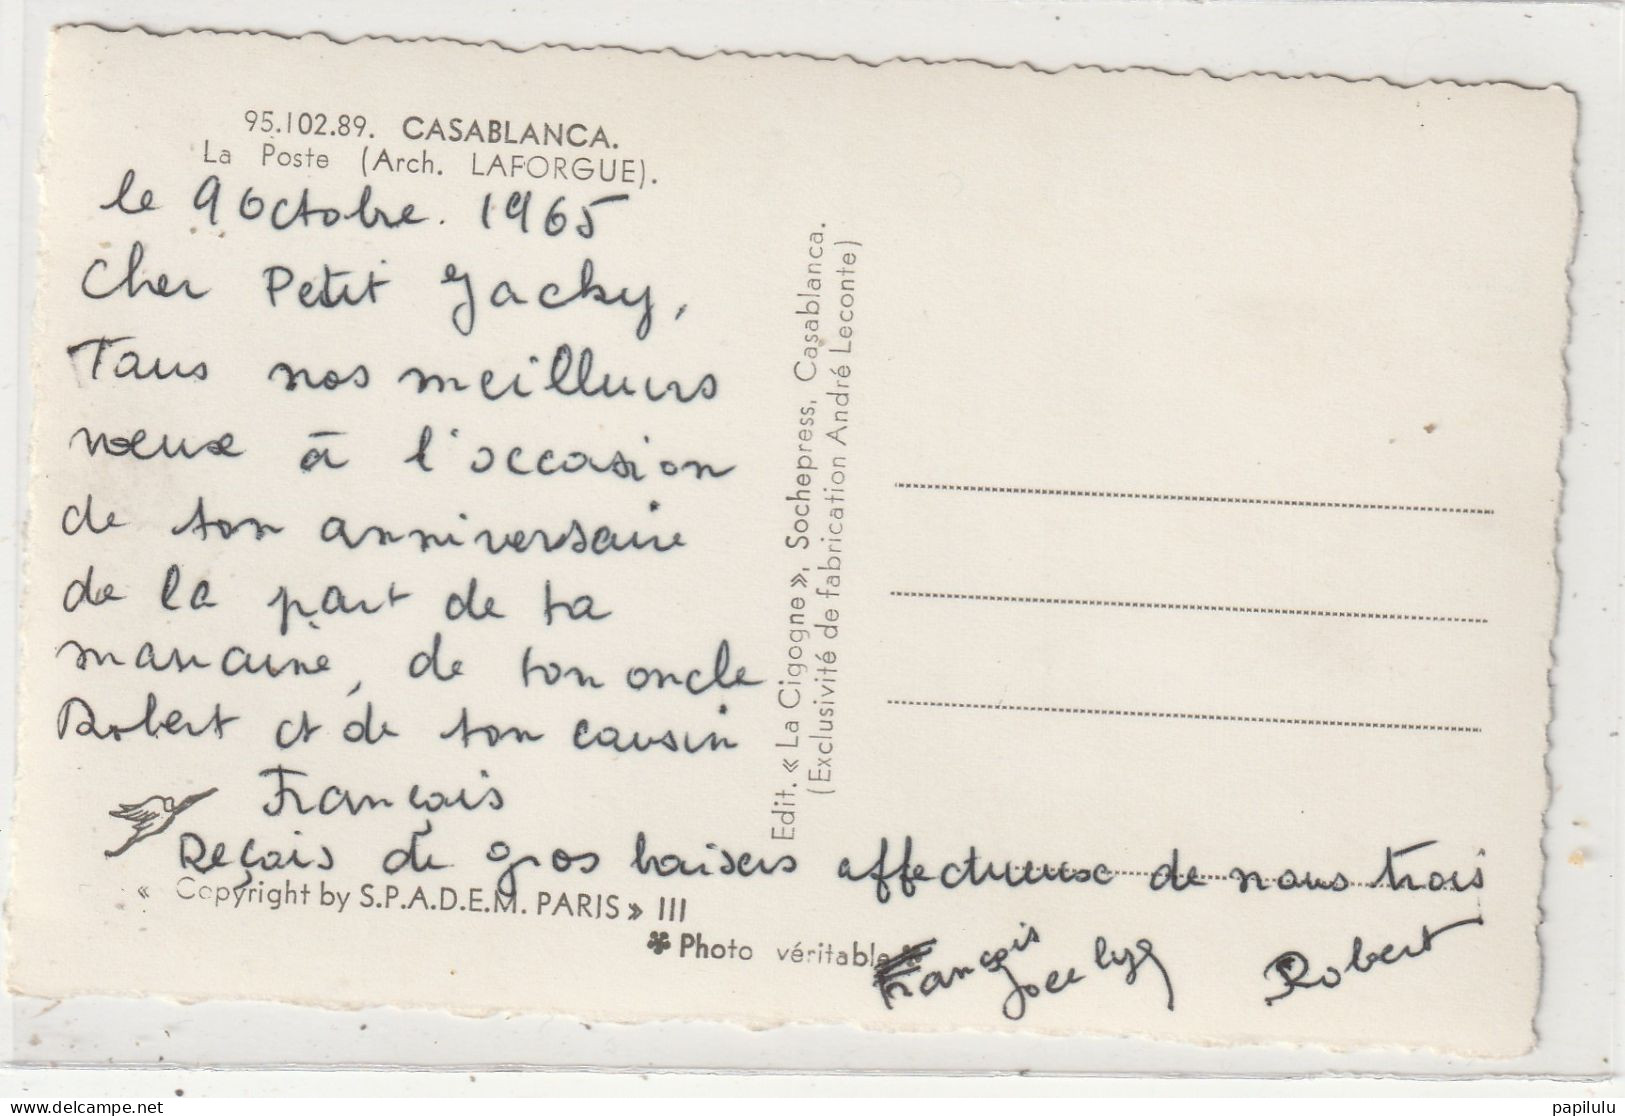 95.102.89. CASABLANCA.
La Poste (Arch. LAFORGUE).
le 9 Octobre. 1965
Cher Petit Jacky,
Tous nos meilleurs
vœux à l'occasion
de ton anniversaire
de la part de ta
marraine, de ton oncle
Robert et de ton cousin
François
Reçois de gros baisers affectueux de nous trois
« Copyright by S.P.A.D.E.M. PARIS » III
* Photo véritable *
François
Jocelyne
Robert
Edit. « La Cigogne », Sochepress, Casablanca.
(Exclusivité de fabrication André Leconte)
papilulu
delcampe.net